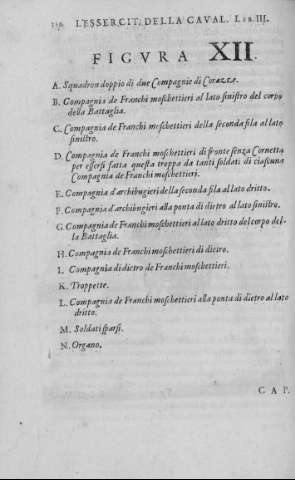 L'ESSERCIT. DELLA CAVAL. LIB. III.
FIGVRA XII.
A. Squadron doppio di due Compagnie di Corazze.
B. Compagnia de Franchi moschettieri al lato sinistro del corpo
della Battaglia.
C. Compagnia de Franchi moschettieri della seconda fila al lato
sinistro.
D. Compagnia de Franchi moschettieri di fronte senza Cornetta
per essersi fatta questa troppa da tanti soldati di ciascuna
Compagnia de Franchi moschettieri.
E. Compagnia d'archibugieri della seconda fila al lato dritto.
F. Compagnia d'archibugieri alla ponta di dietro al lato sinistro.
G. Compagnia de Franchi moschettieri al lato dritto del corpo del-
la Battaglia.
H. Compagnia de Franchi moschettieri di dietro.
I. Compagnia di dietro de Franchi moschettieri.
K. Troppette.
L. Compagnia de Franchi moschettieri alla ponta di dietro al lato
dritto.
M. Soldati sparsi.
N. Organo.
CAP.